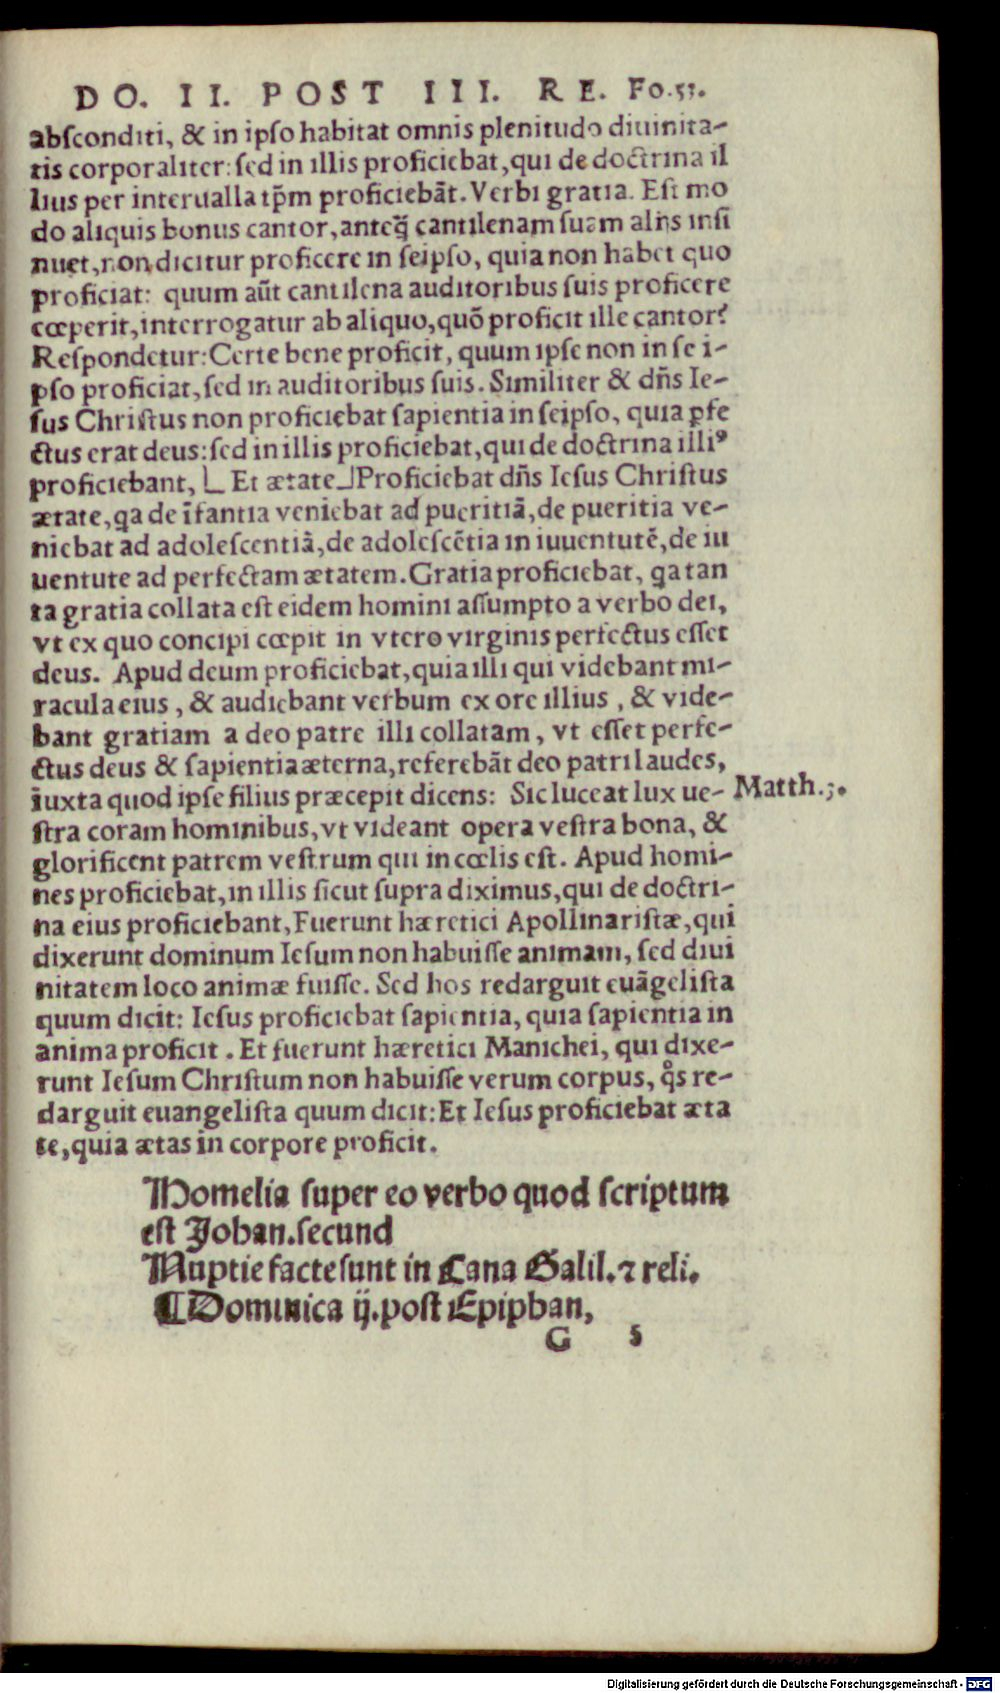 DO. II. POST III. RE. Fo.53.
absconditi, & in ipso habitat omnis plenitudo diuinita-
tis corporaliter: sed in illis proficiebat, qui de doctrina il
lius per interualla tp̄m proficiebāt. Verbi gratia. Est mo
do aliquis bonus cantor, anteq̄ cantilenam suam alijs insi
nuet, non dicitur proficere in seipso, quia non habet quo
proficiat: quum aūt cantilena auditoribus suis proficere
cœperit, interrogatur ab aliquo, quō proficit ille cantor?
Respondetur: Certe bene proficit, quum ipse non in se i-
pso proficiat, sed in auditoribus suis. Similiter & dñs Ie-
sus Christus non proficiebat sapientia in seipso, quia ꝑfe
ctus erat deus: sed in illis proficiebat, qui de doctrina illiꝰ
proficiebant, ⌊ Et ætate ⌋ Proficiebat dñs Iesus Christus
ætate, qa de īfantia veniebat ad pueritiā, de pueritia ve-
niebat ad adolescentiā, de adolescētia in iuuentutē, de iu
uentute ad perfectam ætatem. Gratia proficiebat, qa tan
ta gratia collata est eidem homini assumpto a verbo dei,
vt ex quo concipi cœpit in vtero virginis perfectus esset
deus. Apud deum proficiebat, quia illi qui videbant mi-
racula eius, & audiebant verbum ex ore illius, & vide-
bant gratiam a deo patre illi collatam, vt esset perfe-
ctus deus & sapientia æterna, referebāt deo patri laudes,
iuxta quod ipse filius præcepit dicens: Sic luceat lux ue- Matth.5.
stra coram hominibus, vt videant opera vestra bona, &
glorificent patrem vestrum qui in cœlis est. Apud homi-
nes proficiebat, in illis sicut supra diximus, qui de doctri-
na eius proficiebant, Fuerunt hæretici Apollinaristæ, qui
dixerunt dominum Iesum non habuisse animam, sed diui
nitatem loco animæ fuisse. Sed hos redarguit euāgelista
quum dicit: Iesus proficiebat sapientia, quia sapientia in
anima proficit. Et fuerunt hæretici Manichei, qui dixe-
runt Iesum Christum non habuisse verum corpus, qͦs re-
darguit euangelista quum dicit: Et Iesus proficiebat æta
te, quia ætas in corpore proficit.
Homelia super eo verbo quod scriptum
est Johan. secund
Nuptie facte sunt in Cana Galil. ⁊ reli.
¶ Dominica ij. post Epiphan,
G 5
Digitalisierung gefördert durch die Deutsche Forschungsgemeinschaft - DFG